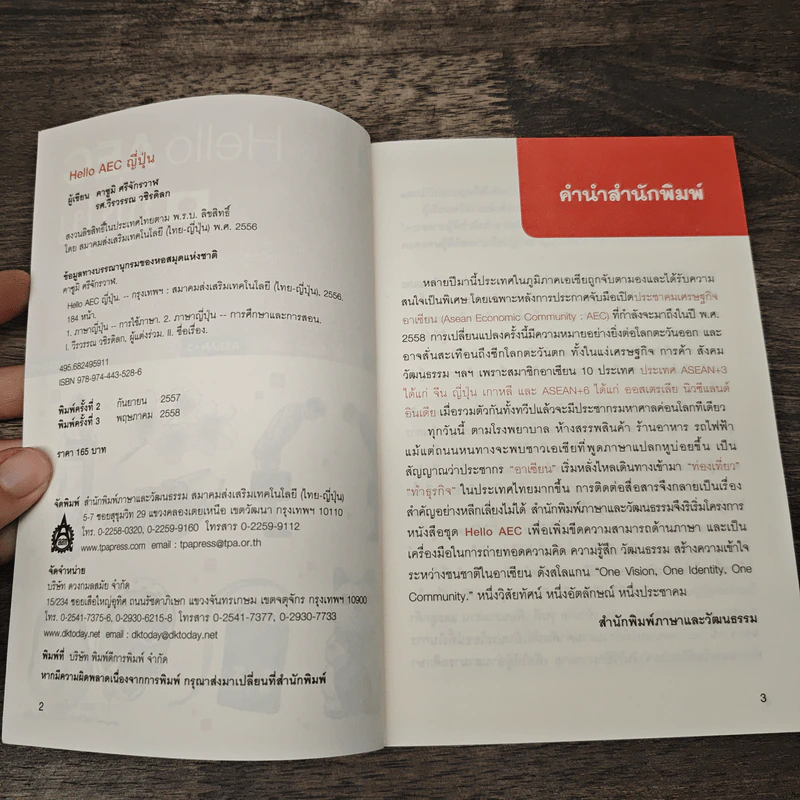 Hello AEC ญี่ปุ่น
ผู้เขียน คาซูมิ ศรีจักรวาฬ
รศ.วีรวรรณ วชิรดิลก
สงวนลิขสิทธิ์ในประเทศไทยตาม พ.ร.บ. ลิขสิทธิ์
โดย สมาคมส่งเสริมเทคโนโลยี (ไทย-ญี่ปุ่น) พ.ศ. 2556
ข้อมูลทางบรรณานุกรมของหอสมุดแห่งชาติ
คาซูมิ ศรีจักรวาฬ.
Hello AEC ญี่ปุ่น. -- กรุงเทพฯ : สมาคมส่งเสริมเทคโนโลยี (ไทย-ญี่ปุ่น), 2556.
184 หน้า.
1. ภาษาญี่ปุ่น -- การใช้ภาษา. 2. ภาษาญี่ปุ่น -- การศึกษาและการสอน.
I. วีรวรรณ วชิรดิลก, ผู้แต่งร่วม. II. ชื่อเรื่อง.
495.682495911
ISBN 978-974-443-528-6
พิมพ์ครั้งที่ 2 กันยายน 2557
พิมพ์ครั้งที่ 3 พฤษภาคม 2558
ราคา 165 บาท
จัดพิมพ์ สำนักพิมพ์ภาษาและวัฒนธรรม สมาคมส่งเสริมเทคโนโลยี (ไทย-ญี่ปุ่น)
5-7 ซอยสุขุมวิท 29 แขวงคลองเตยเหนือ เขตวัฒนา กรุงเทพฯ 10110
โทร. 0-2258-0320, 0-2259-9160 โทรสาร 0-2259-9112
www.tpapress.com email : tpapress@tpa.or.th
จัดจำหน่าย
บริษัท ดวงกมลสมัย จำกัด
15/234 ซอยเสือใหญ่อุทิศ ถนนรัชดาภิเษก แขวงจันทรเกษม เขตจตุจักร กรุงเทพฯ 10900
โทร. 0-2541-7375, 0-2930-6215-8 โทรสาร 0-2541-7377, 0-2930-7733
www.dktoday.net email : dktoday@dktoday.net
พิมพ์ที่ บริษัท พิมพ์ดีการพิมพ์ จำกัด
หากมีความผิดพลาดเนื่องจากการพิมพ์ กรุณาส่งมาเปลี่ยนที่สำนักพิมพ์
2
คำนำสำนักพิมพ์
หลายปีมานี้ประเทศในภูมิภาคเอเชียถูกจับตามองและได้รับความ
สนใจเป็นพิเศษ โดยเฉพาะหลังการประกาศจับมือเปิดประชาคมเศรษฐกิจ
อาเซียน (Asean Economic Community : AEC) ที่กำลังจะมาถึงในปี พ.ศ.
2558 การเปลี่ยนแปลงครั้งนี้มีความหมายอย่างยิ่งต่อโลกตะวันออก และ
อาจสั่นสะเทือนถึงซีกโลกตะวันตก ทั้งในแง่เศรษฐกิจ การค้า สังคม
วัฒนธรรม ฯลฯ เพราะสมาชิกอาเซียน 10 ประเทศ ประเทศ ASEAN+3
ได้แก่ จีน ญี่ปุ่น เกาหลี และ ASEAN+6 ได้แก่ ออสเตรเลีย นิวซีแลนด์
อินเดีย เมื่อรวมตัวกันทั้งทวีปแล้วจะมีประชากรมหาศาลค่อนโลกทีเดียว
ทุกวันนี้ ตามโรงพยาบาล ห้างสรรพสินค้า ร้านอาหาร รถไฟฟ้า
แม้แต่ถนนหนทางจะพบชาวเอเชียที่พูดภาษาแปลกหูบ่อยขึ้น เป็น
สัญญาณว่าประชากร "อาเซียน" เริ่มหลั่งไหลเดินทางเข้ามา "ท่องเที่ยว"
"ทำธุรกิจ" ในประเทศไทยมากขึ้น การติดต่อสื่อสารจึงกลายเป็นเรื่อง
สำคัญอย่างหลีกเลี่ยงไม่ได้ สำนักพิมพ์ภาษาและวัฒนธรรมจึงริเริ่มโครงการ
หนังสือชุด Hello AEC เพื่อเพิ่มขีดความสามารถด้านภาษา และเป็น
เครื่องมือในการถ่ายทอดความคิด ความรู้สึก วัฒนธรรม สร้างความเข้าใจ
ระหว่างชนชาติในอาเซียน ดังสโลแกน "One Vision, One Identity, One
Community." หนึ่งวิสัยทัศน์ หนึ่งอัตลักษณ์ หนึ่งประชาคม
สำนักพิมพ์ภาษาและวัฒนธรรม
3